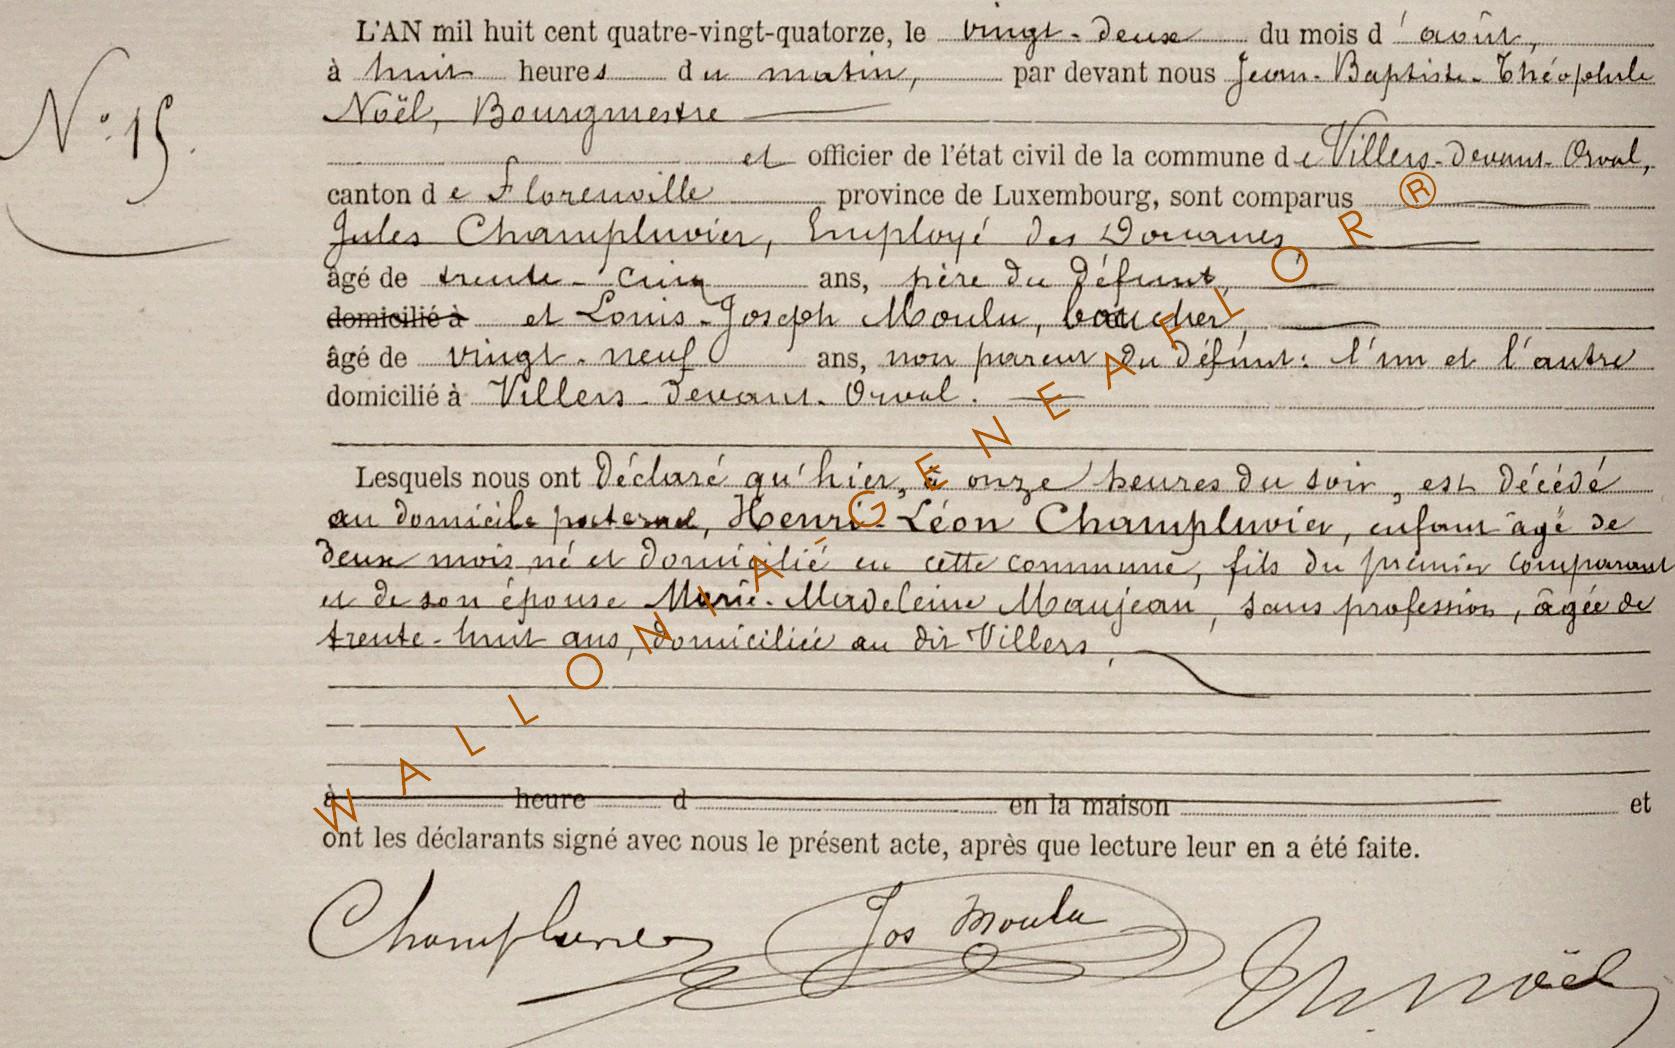 L'AN mil huit cent quatre-vingt-quatorze, le vingt-deux du mois d'août,
à huit heures du matin, par devant nous Jean-Baptiste-Théophile
N° 15.
Noël, Bourgmestre
et officier de l'état civil de la commune de Villers-devant-Orval,
canton de Florenville province de Luxembourg, sont comparus
Jules Champluvier, Employé des Douanes
âgé de trente-cinq ans, père du défunt,
domicilié à et Louis-Joseph Moulu, boucher,
âgé de vingt-neuf ans, non parent du défunt: l'un et l'autre
domicilié à Villers-devant-Orval.
Lesquels nous ont déclaré qu'hier, à onze heures du soir, est décédé
au domicile paternel, Henri-Léon Champluvier, enfant âgé de
deux mois né et domicilié en cette commune, fils du premier comparant
et de son épouse Marie-Madeleine Maujean, sans profession, âgée de
trente-huit ans, domiciliée au dit Villers,
à heure d en la maison et
ont les déclarants signé avec nous le présent acte, après que lecture leur en a été faite.
Champluvier Jos Moulu Th. Noël
WALLONIA-GENEAFLOR®